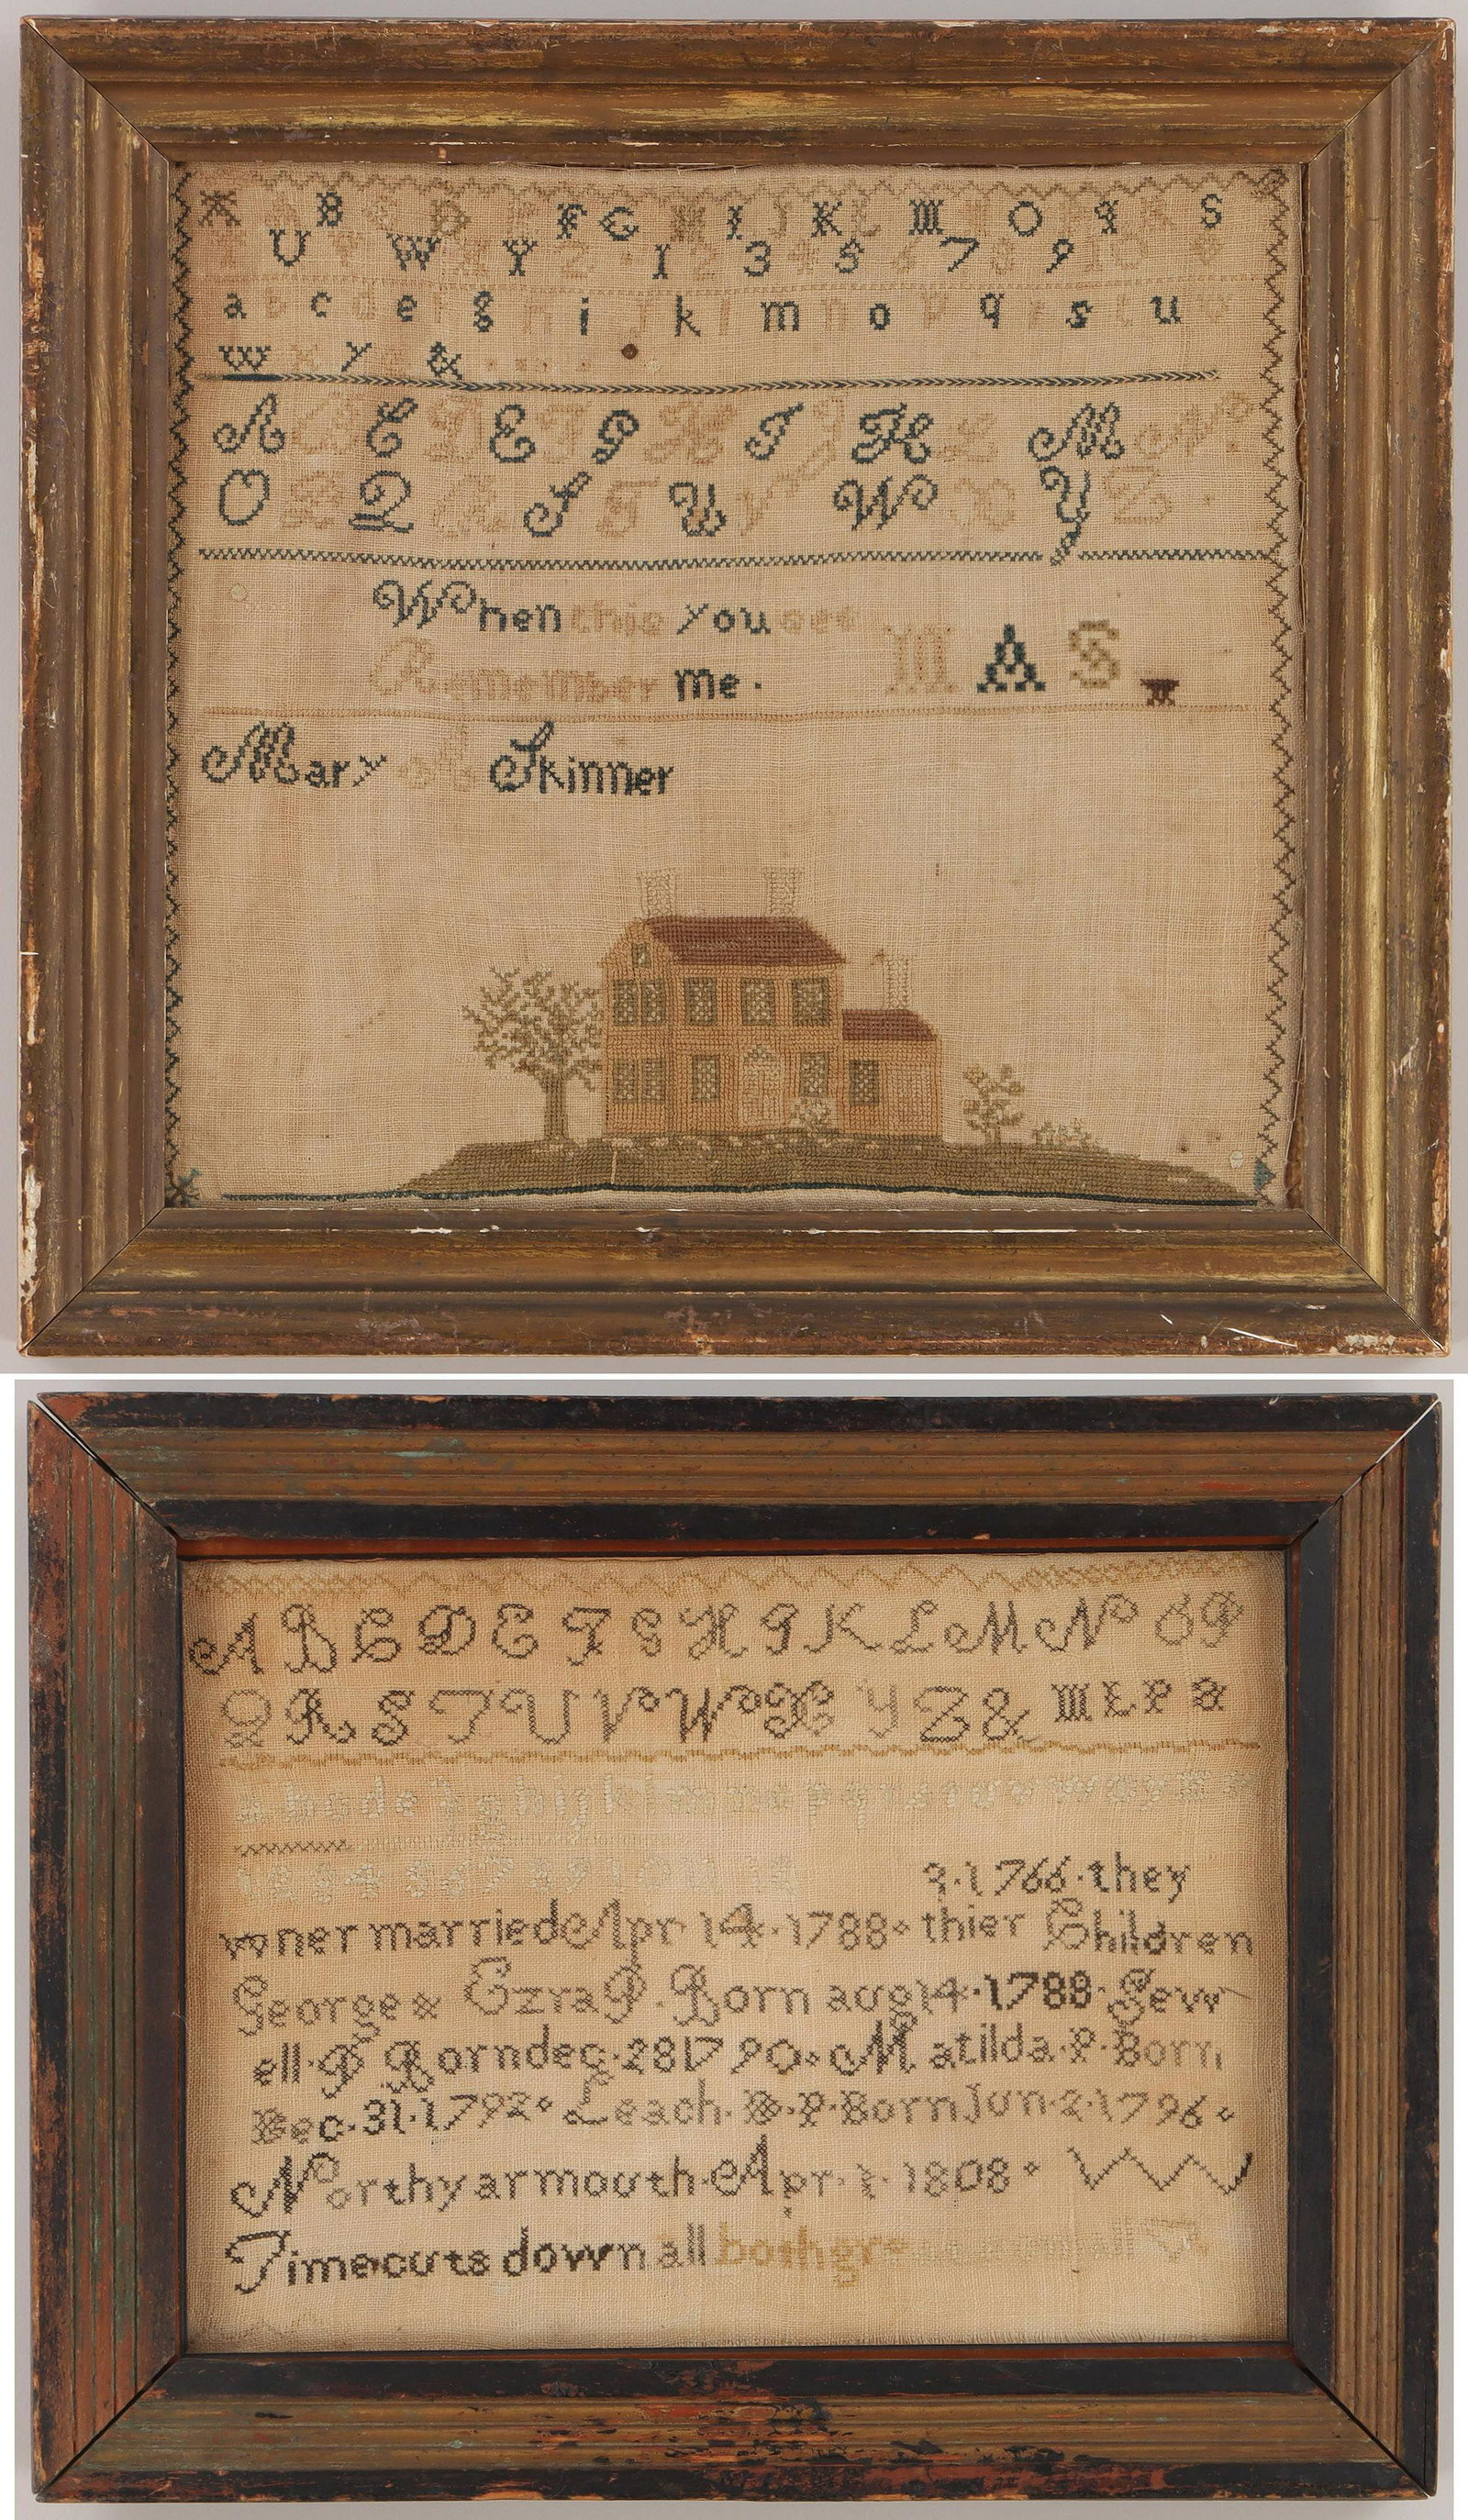 A B C D F G H I K L M O P Q R S
U W X Y Z 1 2 3 4 5 6 7 8 9 10
a b c d e f g h i j k l m n o p q r s t u v
w x y z &
A B C D E F G H I J K L M N
O P Q R S T U V W X Y Z
When this you see
Remember me. M A S
Mary A Skinner
A B C D E F G H I K L M N O P
Q R S T U V W X Y Z & M L P a
a b c d e f g h i j k l m n o p q r s t u v w x y z
1 2 3 4 5 6 7 8 9 10 11 12 3·1766·they
wner married Apr 14·1788 thier Children
George & Ezra P. Born aug 14·1788·Sew
ell·P Born dec·28 1790 Matilda·P·Born
Dec·31·1792 Leach·B·P·Born Jun·2·1796
Northyarmouth·Apr·1·1808
Time cuts down all both gre